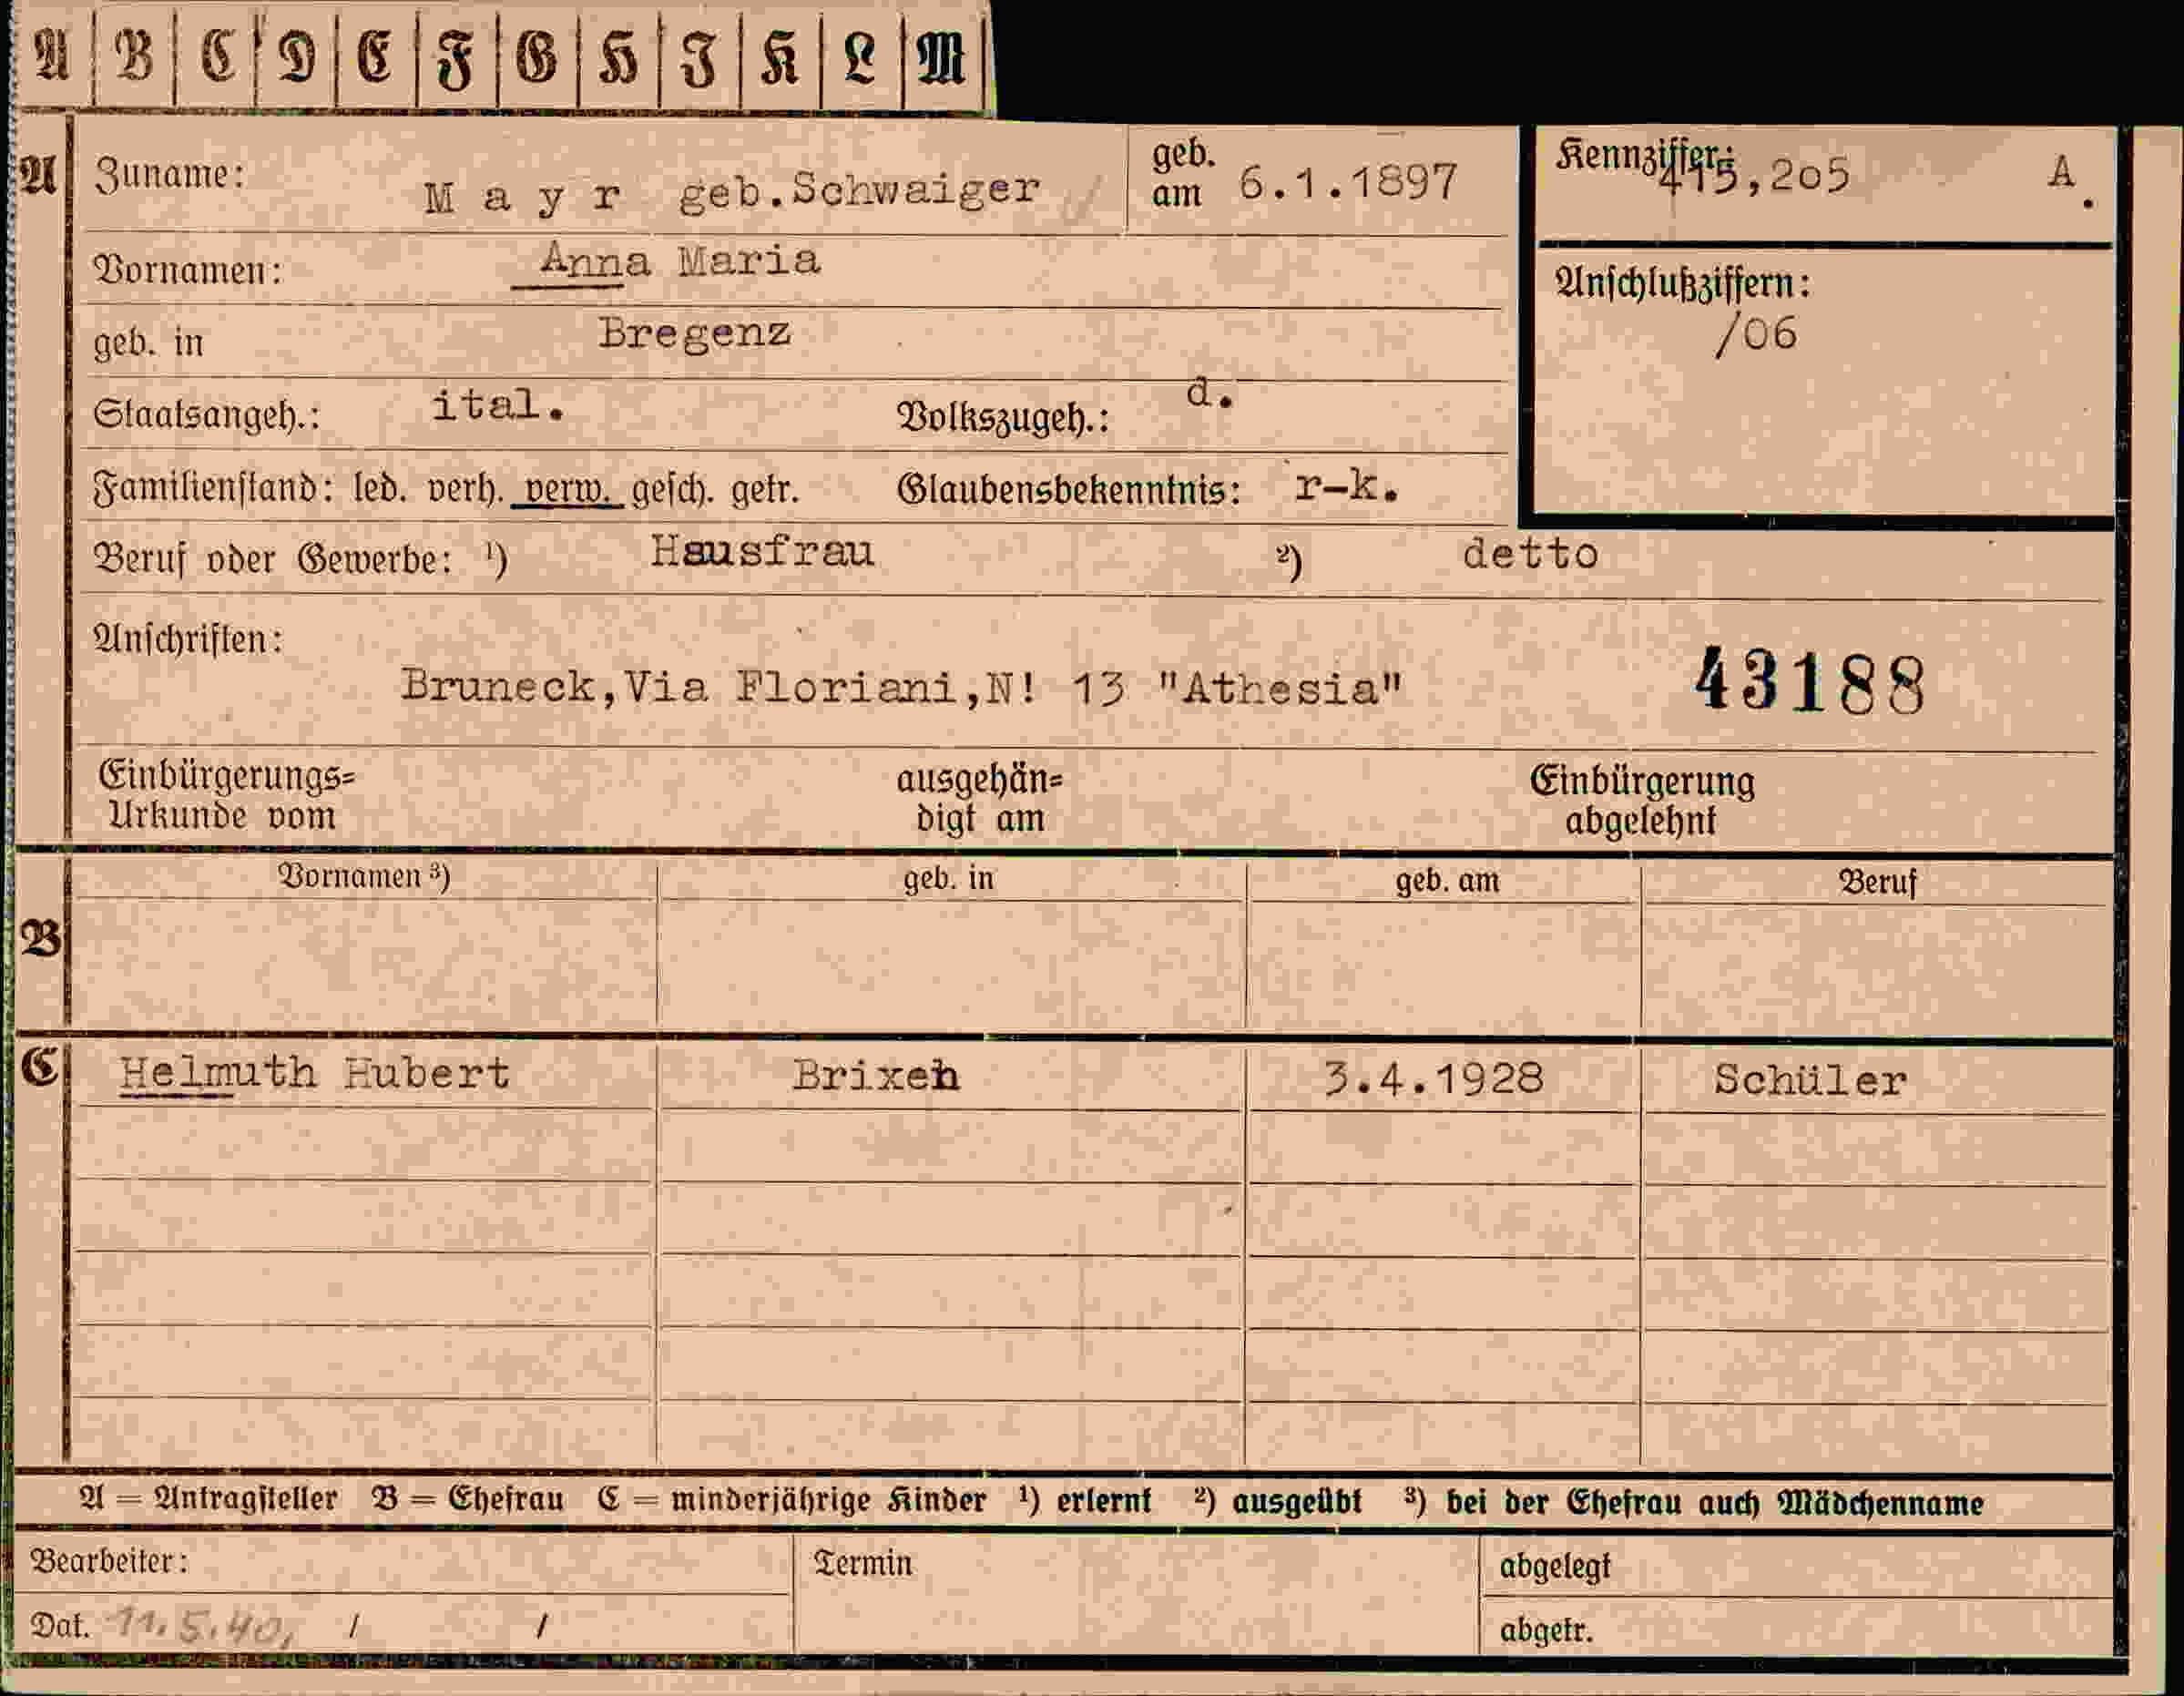 A B C D E F G H I K L M
A Zuname: M a y r geb.Schwaiger geb. am 6.1.1897 Kennziffer: 415,205 A.
Vornamen: Anna Maria
Anschlußziffern:
geb. in Bregenz /06
Staatsangeh.: ital. Volkszugeh.: d.
Familienstand: led. verh. verw. gesch. getr. Glaubensbekenntnis: r-k.
Beruf oder Gewerbe: ¹) Hausfrau ²) detto
Anschriften:
Bruneck,Via Floriani,N! 13 "Athesia" 43188
Einbürgerungs= ausgehän= Einbürgerung
Urkunde vom digt am abgelehnt
Vornamen ³) geb. in geb. am Beruf
B
C Helmuth Hubert Brixen 3.4.1928 Schüler
A = Antragsteller B = Ehefrau C = minderjährige Kinder ¹) erlernt ²) ausgeübt ³) bei der Ehefrau auch Mädchenname
Bearbeiter: Termin abgelegt
Dat. 11.5.40, / / abgetr.